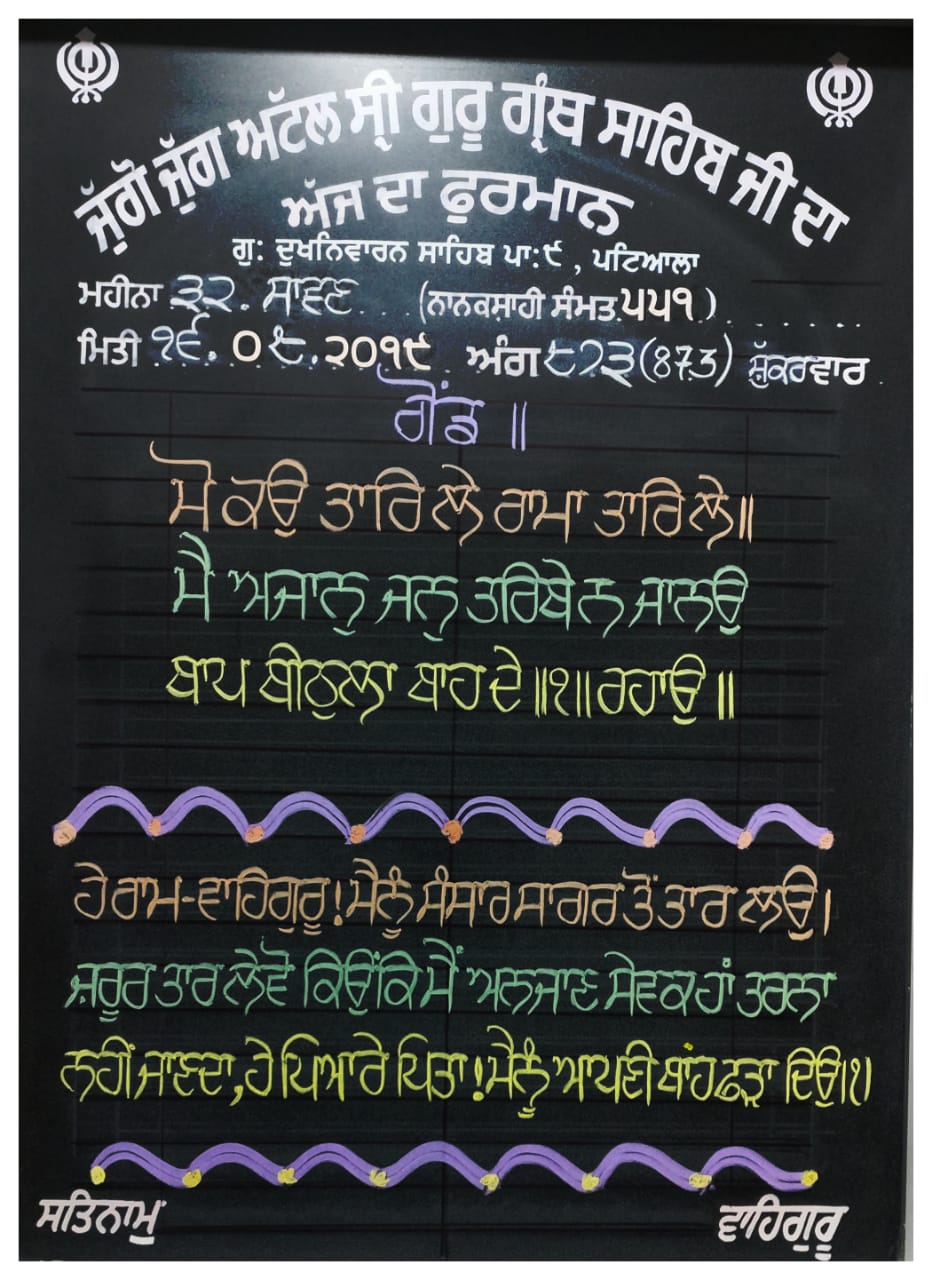 ਜੁੱਗੋ ਜੁੱਗ ਅਟੱਲ ਸ੍ਰੀ ਗੁਰੂ ਗ੍ਰੰਥ ਸਾਹਿਬ ਜੀ ਦਾ
ਅੱਜ ਦਾ ਫੁਰਮਾਨ
ਗੁ: ਦੁਖਨਿਵਾਰਨ ਸਾਹਿਬ ਪਾ:੯ , ਪਟਿਆਲਾ
ਮਹੀਨਾ ੩੨. ਸਾਵਣ (ਨਾਨਕਸ਼ਾਹੀ ਸੰਮਤ ੫੫੧)
ਮਿਤੀ ੧੬.੦੮.੨੦੧੯ ਅੰਗ ੮੭੩(873) ਸ਼ੁੱਕਰਵਾਰ
ਗੋਂਡ ॥
ਮੋ ਕਉ ਤਾਰਿ ਲੇ ਰਾਮਾ ਤਾਰਿ ਲੇ॥
ਮੈ ਅਜਾਨੁ ਜਨੁ ਤਰਿਬੇ ਨ ਜਾਨਉ
ਬਾਪ ਬੀਠੁਲਾ ਬਾਹ ਦੇ ॥੧॥ ਰਹਾਉ ॥
ਹੇ ਰਾਮ-ਵਾਹਿਗੁਰੂ! ਮੈਨੂੰ ਸੰਸਾਰ ਸਾਗਰ ਤੋਂ ਤਾਰ ਲਉ।
ਜ਼ਰੂਰ ਤਾਰ ਲੇਵੋ ਕਿਉਂਕਿ ਮੈਂ ਅਨਜਾਣ ਸੇਵਕ ਹਾਂ ਤਰਨਾ
ਨਹੀਂ ਜਾਣਦਾ, ਹੇ ਪਿਆਰੇ ਪਿਤਾ! ਮੈਨੂੰ ਆਪਣੀ ਬਾਂਹ ਫੜਾ ਦਿਉ।੧।
ਸਤਿਨਾਮੁ
ਵਾਹਿਗੁਰੂ